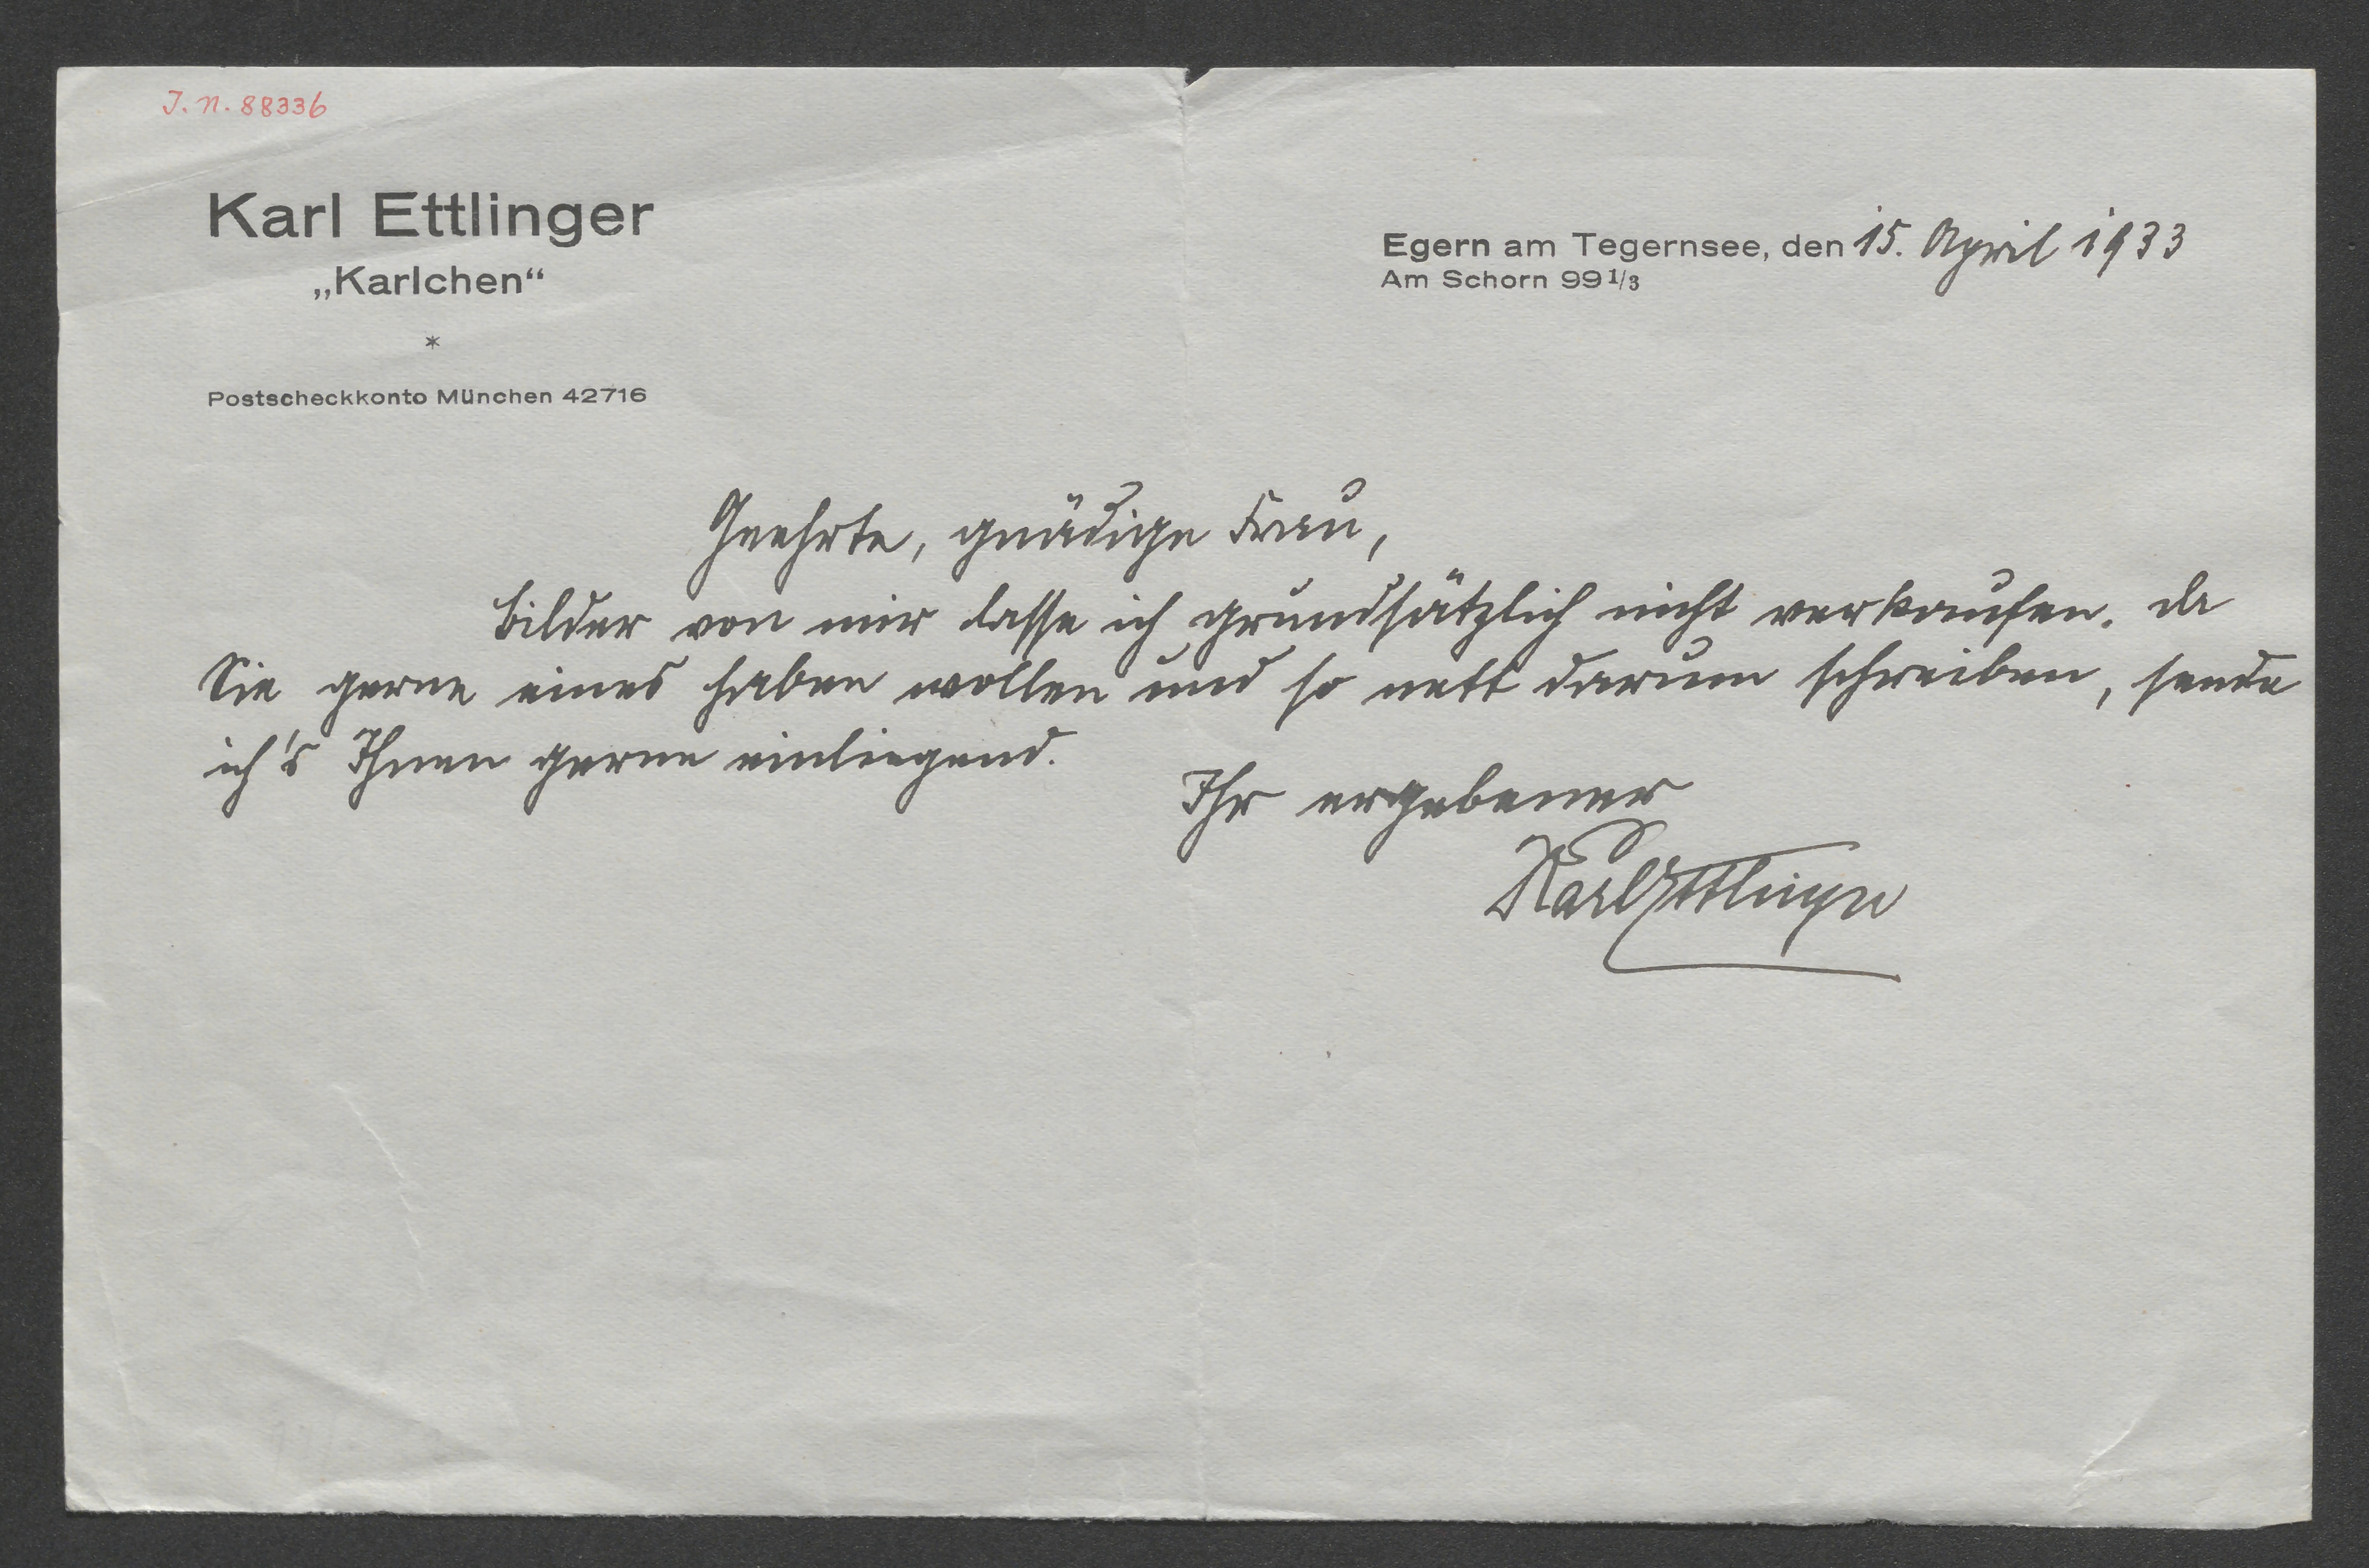 J. N. 88336
Karl Ettlinger
„Karlchen“
*
Postscheckkonto München 42716
Egern am Tegernsee, den 15. April 1933
Am Schorn 99 1/3
Geehrte, gnädige Frau,
Bilder von mir lasse ich grundsätzlich nicht verkaufen. Da
Sie gerne eines haben wollen und so nett darum schreiben, sende
ich's Ihnen gerne einliegend.
Ihr ergebener
Karl Ettlinger